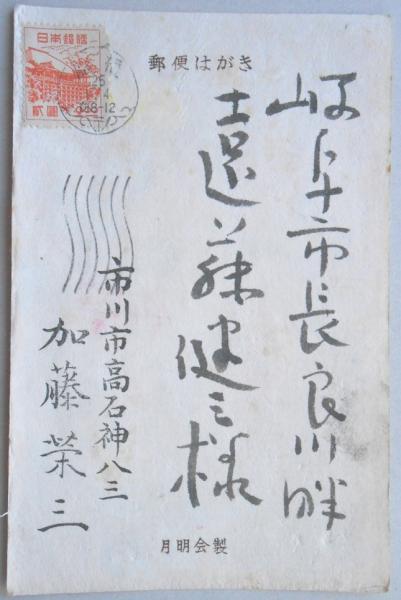 郵便はがき
日本郵便
貳圓
25
8-12
岐阜市長良川畔
遠藤健三様
市川市高石神八三
加藤榮三
月明会製